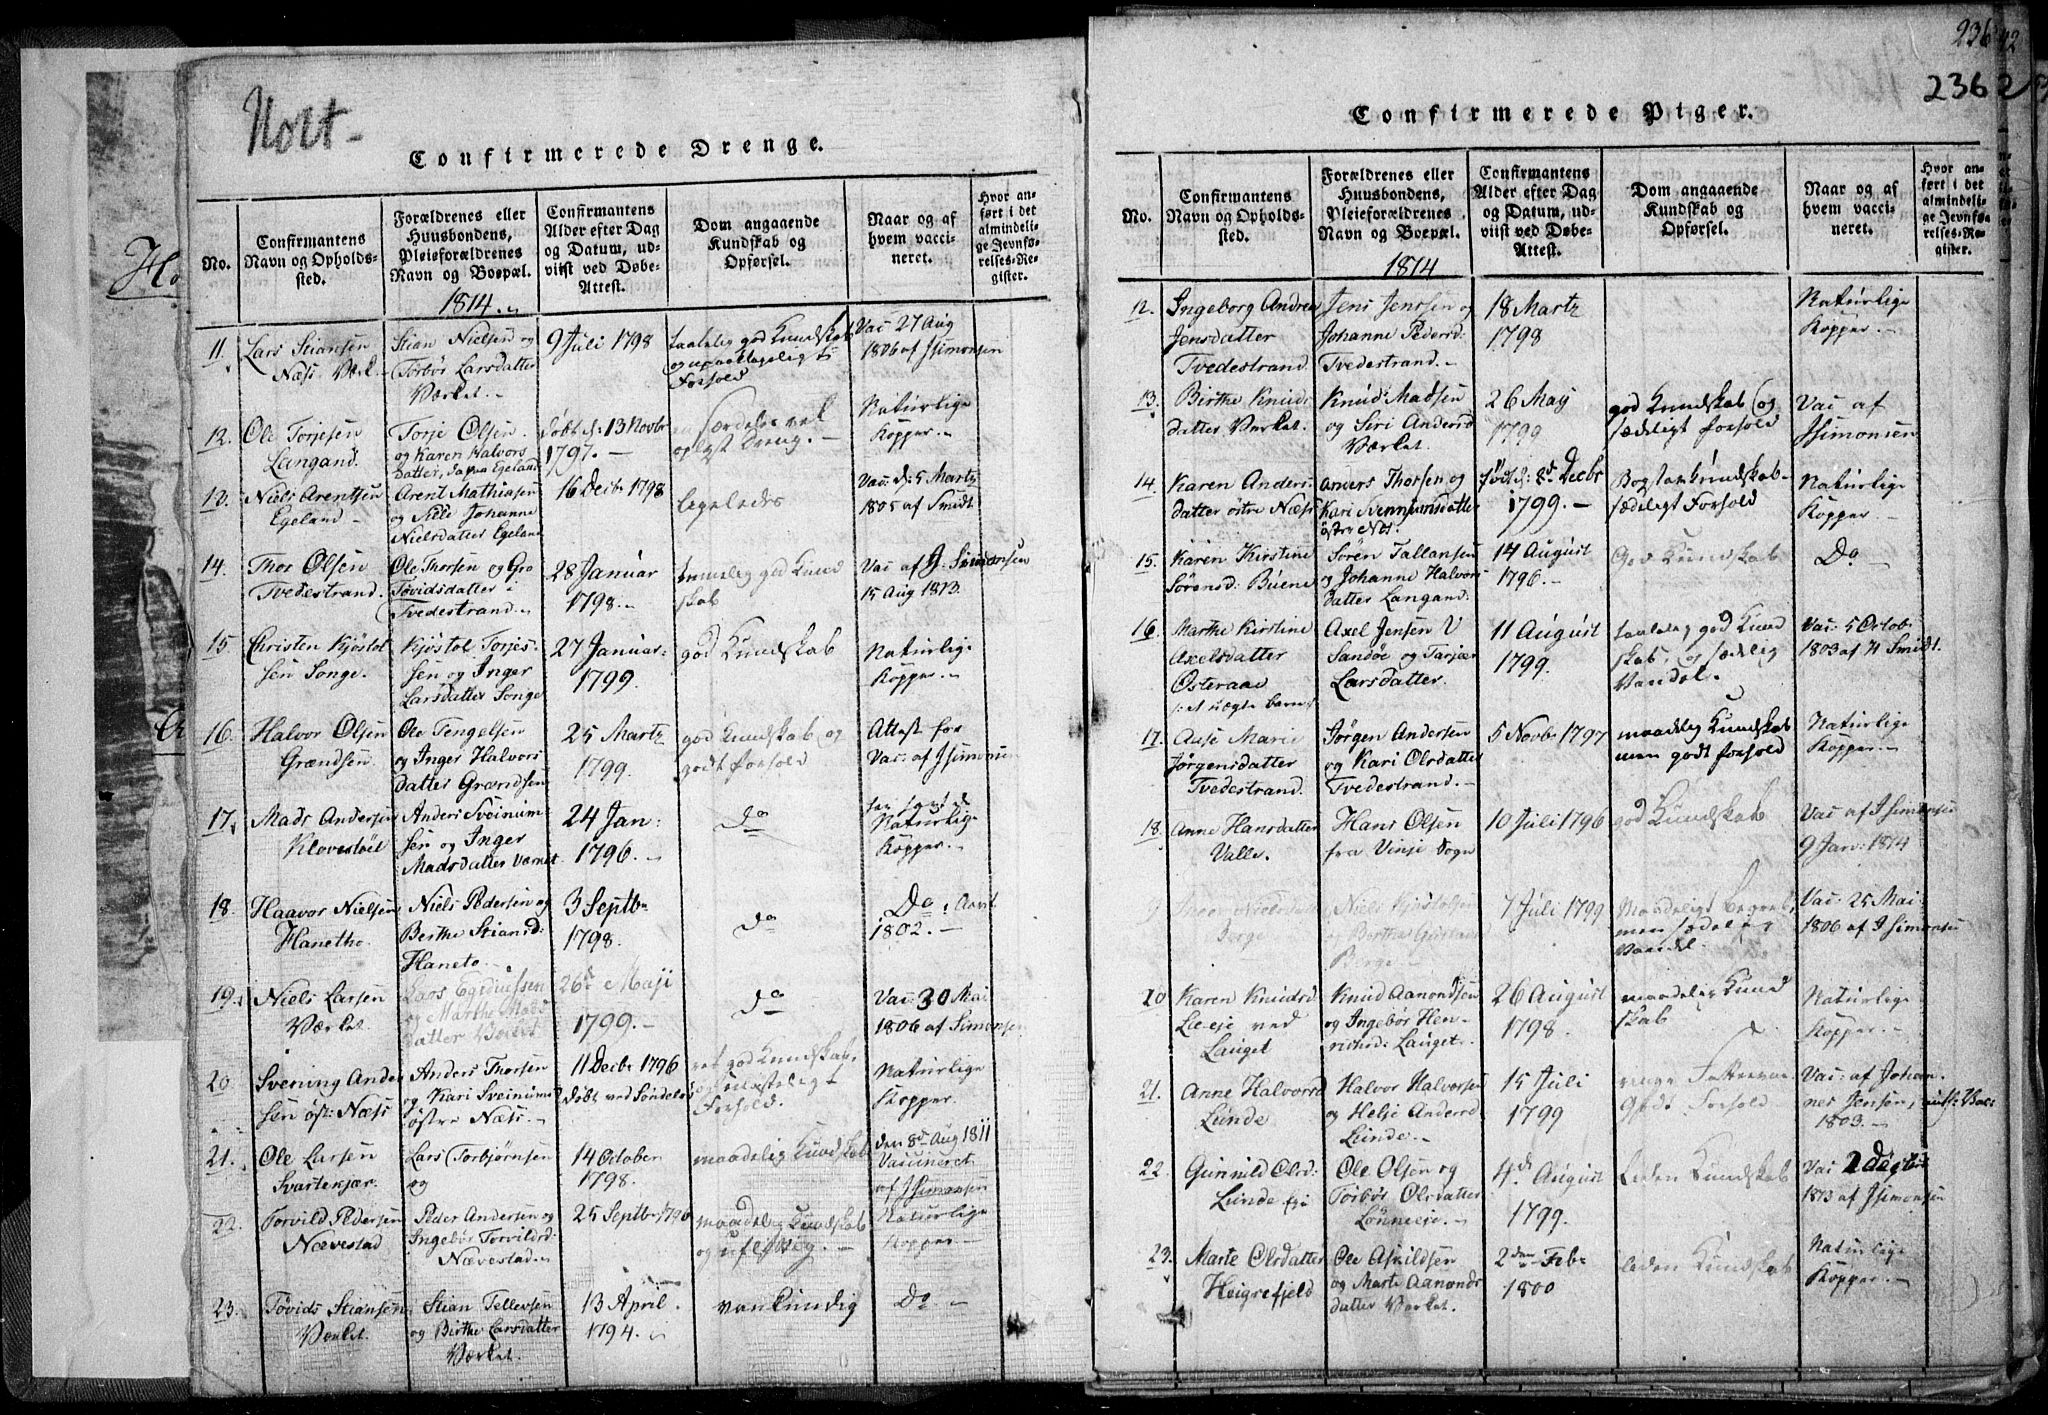 Holt-
Confirmerede Drenge.
No.
Confirmantens
Navn og Opholds-
sted.
Forældrenes eller
Huusbondens,
Pleieforældrenes
Navn og Boepæl.
Confirmantens
Alder efter Dag
og Datum, ud-
viist ved Døbe-
Attest.
Dom angaaende
Kundskab og
Opførsel.
Naar og af
hvem vacci-
neret.
Hvor an-
ført i det
almindeli-
ge Jevnfø-
relses-Re-
gister.
1814.
11.
Lars Stiansen
Næs Værk.
Stian Nielsen og
Torbør Larsdatter
Værket.
9 Juli 1798
taalelig god Kundskab
og upaaklageligt
Forhold
Vac: 27 Aug
1806 af J Simonsen
12.
Ole Torjesen
Langand.
Torje Olsen
og Karen Halvors
datter, da paa Egeland
døbt d: 13 Novbr
1797.
en særdeles vel
oplyst Dreng.
Naturlige
Kopper.
13.
Niels Arentsen
Egeland
Arent Mathiasen
og Johanne
Nielsdatter Egeland
16 Decbr 1798
ligeledes
Vac: d: 5 Martz
1805 af Smidt
14.
Thor Olsen
Tvedestrand.
Ole Thorsen og Gro
Tovidsdatter
Tvedestrand.
28 Januar
1798.
temmelig god Kund
skab
Vac: af J. Simonsen
15 Aug 1813.
15
Christen Kjøstol
sen Songe.
Kjøstol Torjes
sen og Inger
Larsdatter Songe
27 Januar
1799.
god Kundskab
Naturlige
Kopper.
16.
Halvor Olsen
Grændsen.
Ole Tengelsen
og Inger Halvors
datter Grændsen
25 Martz
1799.
god Kundskab og
godt forhold
Attest for
Vac: af J Simonsen
17.
Mads Andersen
Klovestøil
Anders Sveinum
sen og Inger
Madsdatter Værket
24 Jan:
1796.
Do
Naturlige
Kopper.
18.
Haavor Nielsen
Hanetho.
Niels Pedersen og
Berthe Stiansd:
Haneto.
3 Septbr
1798.
do
Do
1802.
19.
Niels Larsen
Værket.
Lars Egidiussen
og Marthe Mads
datter Værket
26d Maji
1799.
Do
Vac: 30 Mai
1806 af Simonsen
20
Svening Ander
sen øst: Næs
Anders Thorsen
og Kari Sveinums
østre Næs.
11 Decbr 1796
Døbt ved Søndeløv
ret god Kundskab
og
Forhold.
Naturlige
Kopper.
21.
Ole Larsen
Svartekjær.
Lars Torbjørnsen
og
14 October
1798.
maadelig Kundskab
den 8d Aug 1811
Vaccineret
af J Simonsen
22.
Torvild Pedersen
Nævestad
Peder Andersen og
Ingebør Torvildsd:
Nævestad.
25 Septbr 1796
maadelig Kundskab
og uflittig.
Naturlige
Kopper
23.
Tøvids Stiansen
Værket.
Stian Tellevsen
og Birthe Larsdatter
Værket.
13 April
1794.
vankundig
Do
236
236
Confirmerede Piger.
No.
Confirmantens
Navn og Opholds-
sted.
Forældrenes eller
Huusbondens,
Pleieforældrenes
Navn og Boepæl.
Confirmantens
Alder efter Dag
og Datum, ud-
viist ved Døbe-
Attest.
Dom angaaende
Kundskab og
Opførsel.
Naar og af
hvem vacci-
neret.
Hvor an-
ført i det
almindeli-
ge Jevnfø-
relses-Re-
gister.
1814
12.
Ingeborg Andrea
Jensdatter
Tvedestrand.
Jens Jenssen og
Johanne Pedersd:
Tvedestrand.
18 Martz
1798
Naturlige
Kopper.
13.
Birthe Knuds
datter Værket.
Knud Madsen
og Siri Andersd
Værket.
26 May
1799
god Kundskab og
sædeligt forhold
Vac af
J Simonsen
14.
Karen Anders
datter østre Næss
Anders Thorsen og
Kari Svennumsdatter
østre Næs
født d: 8d Decbr
1799.
Bogstavkundskab
sædeligt Forhold
Naturlige
Kopper.
15.
Karen Kirstine
Sørensd: Buene
Søren Tallaksen
og Johanne Halvors
datter Langand:
14 August
1796.
God Kundskab
Do
16.
Marthe Kirstine
Axelsdatter
Østeraae
/: et uægte barn:/
Axel Jensen V
Sandøe og Tarjær
Larsdatter.
11 August
1799.
taalelig god Kund
skab, og sædelig
Vandel.
Vac: 5 Octob:
1803 af H Smidt.
17.
Aase Marie
Jørgensdatter
Tvedestrand.
Jørgen Andersen
og Kari Olsdatter
Tvedestrand.
5 Novbr 1797
maadelig Kundskab
men godt forhold
Naturlige
Kopper.
18.
Anne Hansdatter
Valle.
Hans Olsen
fra Vinje Sogn
10 Juli 1796
god Kundskab
Vac: af J Simonsen
9 Jan: 1814
Nielsdatter
Berge
Niels Kjøstolsen
og Berthe
Berge
7 Juli 1799
Maadeligt begreb,
men sædelig
Vandel.
Vac: 25 Mai
1806 af J Simonsen
20
Karen Knudsd
Lie-eje ved
Lauget
Knud Aanondsen
og Ingebør Hen-
richsd: Lauget.
26 August
1798.
maadelig Kund
skab
Naturlige
Kopper.
21.
Anne Halvorsd
Lunde
Halvor Halvorsen
og Helje Andersd
Lunde.
15 Juli
1799
ringe Fatteevne
Godt Forhold.
Vac: af Johan
nes Jensen,
1803.
22.
Gunnild Olsd:
Lunde eje
Ole Olsen og
Torbør Olsdatter
Lønneeje.
4d August
1799.
Liden Kundskab
Vac 2 de
1813 af J Simonsen
23.
Marte Olsdatter
Heigrefjeld
Ole Askildsen
og Marte Aanonds
datter Værket.
2den Febr
1800
liden Kundskab
Naturlige
Kopper.